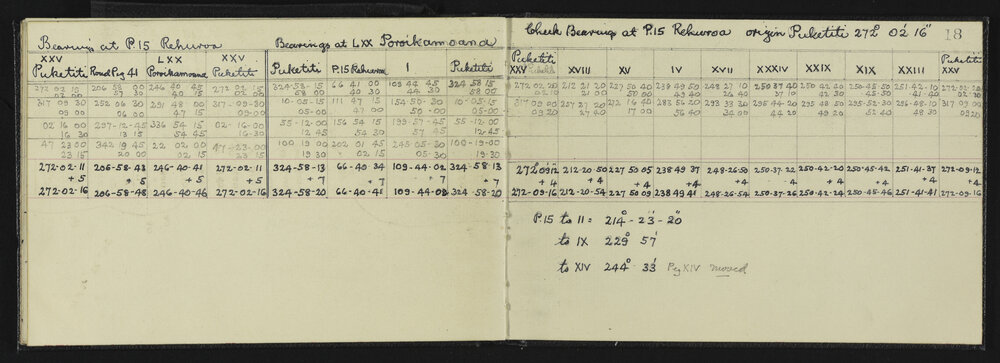 Bearings at P.15 Rehuroa
Bearings at LXX Poroikamoana
XXV LXX XXV
Puketiti Round Peg 41 Poroikamoana Puketiti Puketiti P.15 Rehuroa I Puketiti
272 02 10 206 58 00 246 40 45 272 02 15 324-58-15 66 41 00 109 44 45 324 58 15
02 00 57 30 40 15 02 00 58 00 40 30 44 30 58 00
317 09 30 252 06 30 291 48 00 317-09-30 10-05-15 111 47 15 154 50-30 10-05-15
09 00 06 00 47 15 09 00 05-00 47 00 50-00 05-00
02 16 00 297-12-45 336 54 15 02-16-00 55-12-00 156 54 15 199-57-45 55-12-00
16 30 13 15 54 45 16-30 12 45 54 30 57 45 12-45
47 23 00 342 19 45 22 02 00 47-23-00 100 19 00 202 01 45 245 05 30 100-19-00
23 15 20 00 02 15 23 15 19 30 02 15 05-30 19-30
272-02-11 206-58-43 246-40-41 272-02-11 324-58-13 66-40 34 109-44-02 324-58-13
+5 +5 +5 +5 +7 +7 +7 +7
272-02-16 206-58-48 246-40-46 272-02-16 324-58-20 66-40-41 109-44-09 324-58-20
Check Bearings at P.15 Rehuroa origin Puketiti 272° 02' 16" 18
Puketiti Puketiti
XXV XVIII XV IV XVII XXXIV XXIX XIX XXIII XXV
272 02 20 212 21 20 227 50 40 238 49 50 248 27 10 250 37 40 250 42 30 250-45-50 251-42-10 272-02-20
317 09 00 257 27 20 272 16 40 283 56 20 293 33 30 295 44 20 295 48 50 295-52-30 296-48-10 317-09 00
09 20 27 40 17 00 56 40 34 00 44 20 49 20 52 40 48 30 09 20
272 09 12 212-20 50 227 50 05 238 49 37 248-26-50 250-37-22 250-42-20 250-45-42 251-41-37 272-09-12
+4 +4 +4 +4 +4 +4 +4 +4 +4
272-09-16 212-20-54 227 50 09 238 49 41 248-26-54 250-37-26 250-42-24 250-45-46 251-41-41 272-09-16
P.15 to II = 214° - 23' - 20"
to IX 229° 57'
to XIV 244° 33' Peg XIV moved